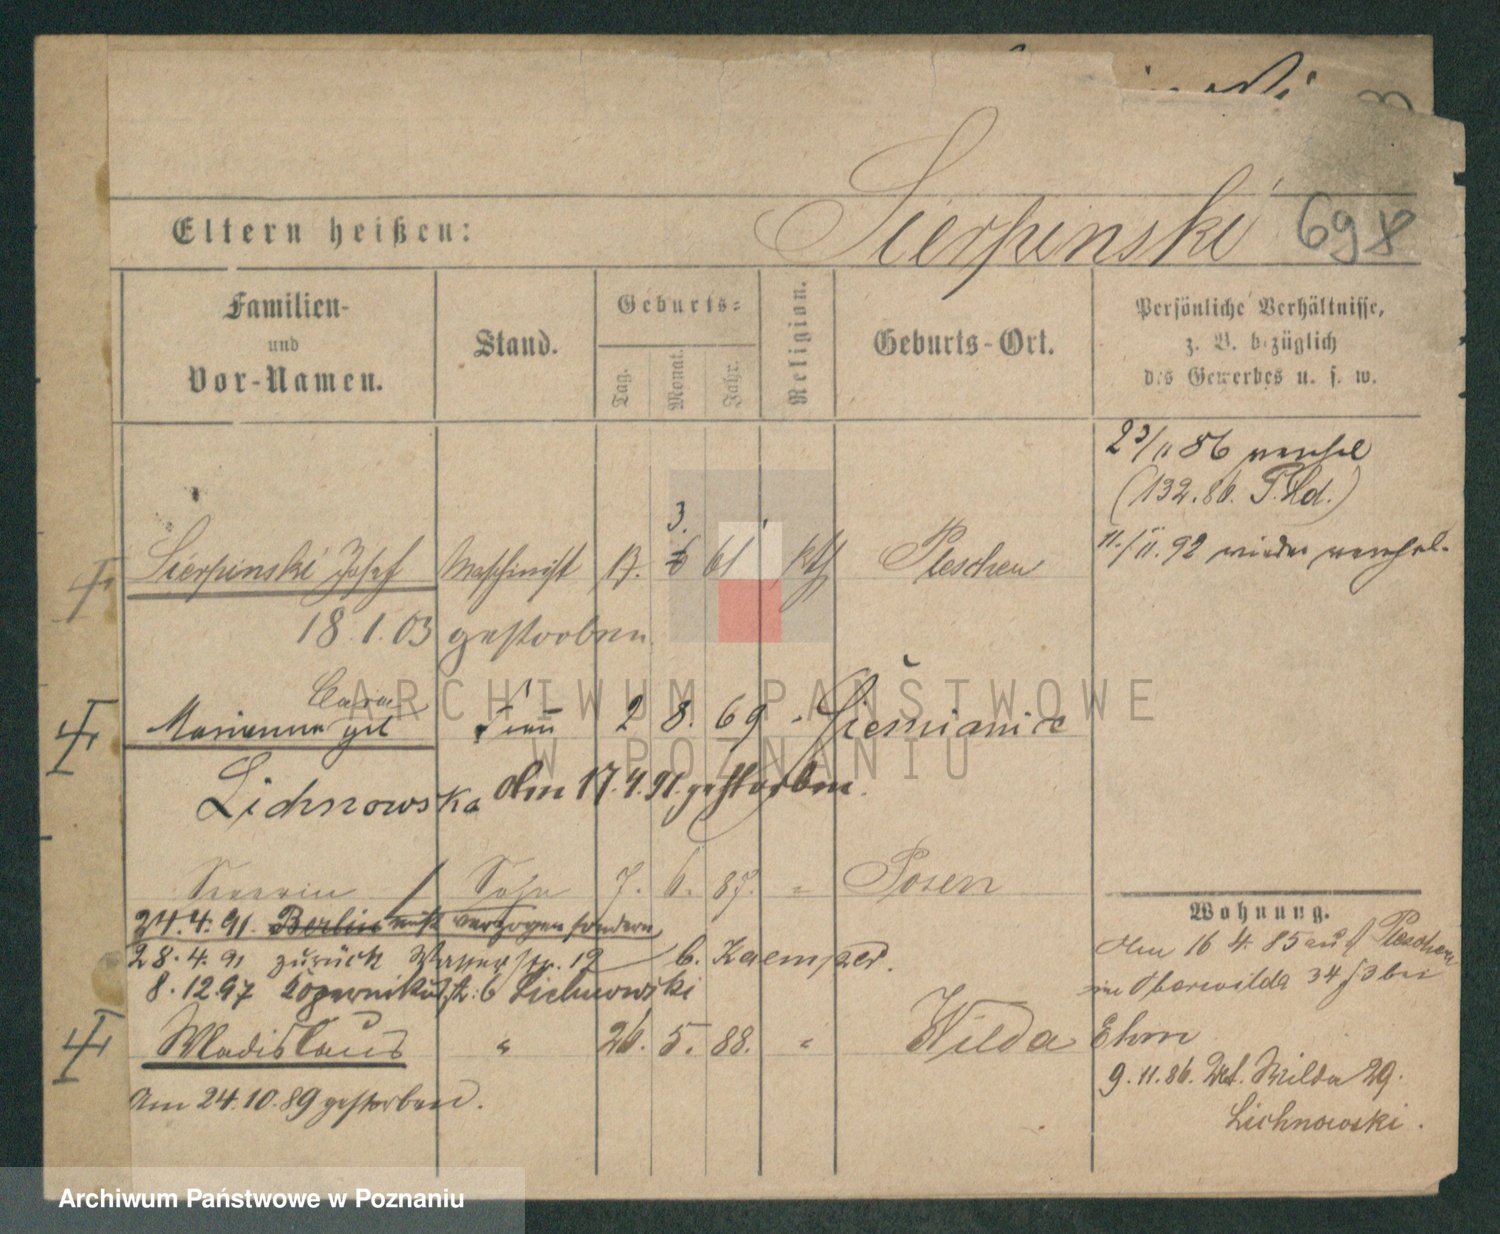 Sierpinski 698
Eltern heißen:
Familien- und Vor-Namen.
Stand.
Geburts-
Tag. Monat. Jahr.
Religion.
Geburts-Ort.
Persönliche Verhältnisse,
z. B. bezüglich
des Gewerbes u. s. w.
23/11 86
(132.86. )
11./11. 92 wieder
3.
Sierpinski Josef Maschinist 17. 6 61 kth Pleschen
18.1.03 gestorben.
Marianna geb Frau 2 8. 69 Siemianic
Lichnowska Am 17.4.91. gestorben.
Severin Sohn 7. 6. 87. " Posen
24.4.91. Berlin nicht verzogen sondern
28.4.91 zurück Wasserstr. 19 b. Kaempfer.
8.12.97 6 Lichnowski
Wladislaus " 26. 5. 88. " Wilda
Am 24.10.89 gestorben.
Wohnung.
Am 16 4. 85 aus Pleschen
in Oberwilda 34 bei
Ehm
9.11.86. Wilda 29.
Lichnowski.
ARCHIWUM PAŃSTWOWE
W POZNANIU
Archiwum Państwowe w Poznaniu